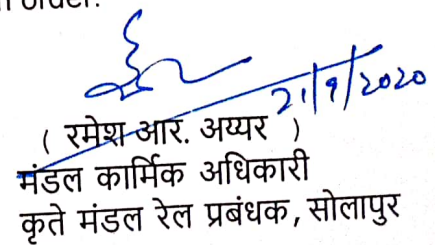 order.
21/9/2020
( रमेश आर. अय्यर )
मंडल कार्मिक अधिकारी
कृते मंडल रेल प्रबंधक, सोलापुर